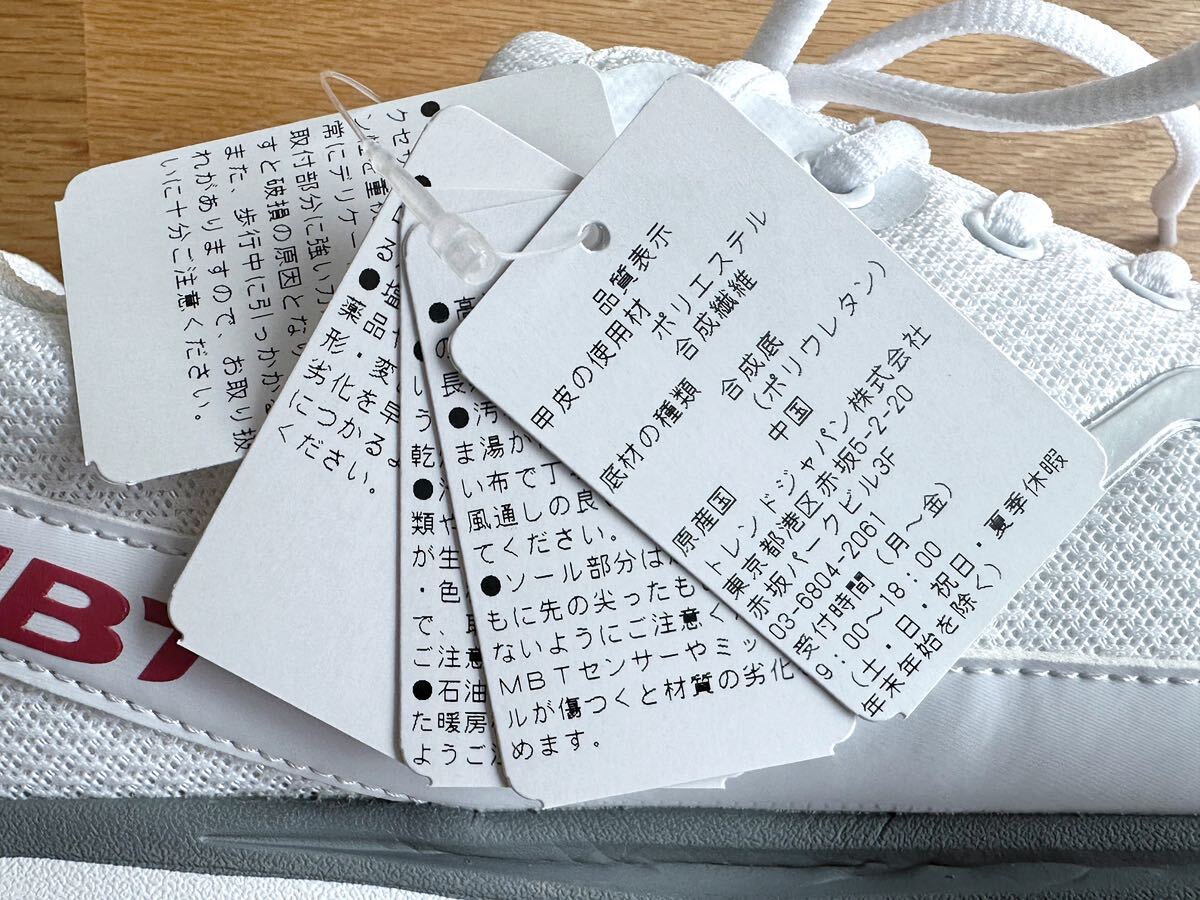 品質表示
甲皮の使用材 ポリエステル
合成繊維
底材の種類 合成底
(ポリウレタン)
原産国 中国
トレンドジャパン株式会社
東京都港区赤坂5-2-20
赤坂パークビル3F
03-6804-2061
受付時間(月〜金)
9:00〜18:00
(土・日・祝日・夏季休暇
年末年始を除く)
長
●汚
ま湯か
い布で丁
風通しの良
てください。
●ソール部分は
もに先の尖ったも
ないようにご注意く
MBTセンサーやミッ
ルが傷つくと材質の劣化
めます。
う
乾
類や
が生
・色
で、
ご注意
●石油
た暖房
ようご注
る
●塩
薬品
形・変
劣化を早
につかる
ください。
クセサ
常にデリケー
取付部分に強い力
すと破損の原因となり
また、歩行中に引っかか
れがありますので、お取り扱
いに十分ご注意ください。
MBT